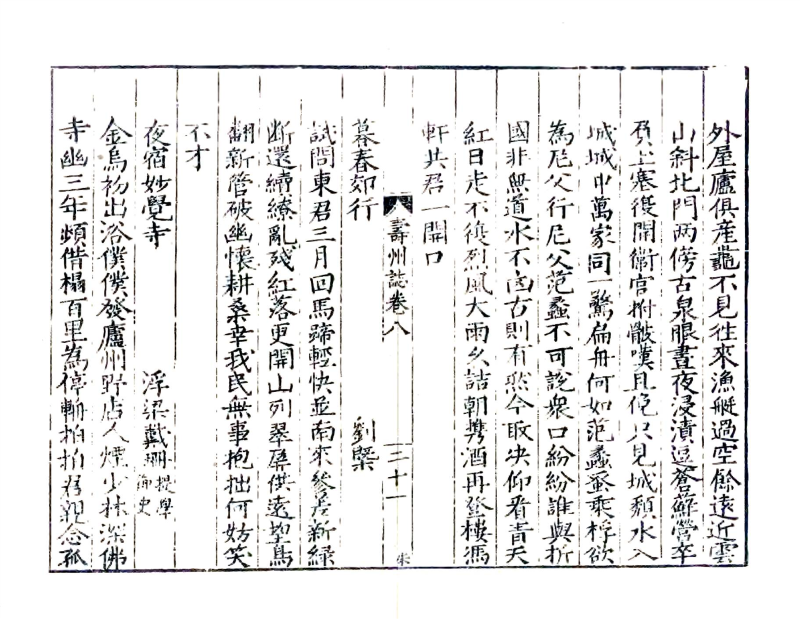 外屋廬俱産鼃不見往來漁艇過空餘遠近雲
山斜北門两傍古泉眼晝夜浸漬逗蒼蘚營卒
負土塞復開衞官拊髀嘆且俛只見城頽水入
城城中萬家同一驚扁舟何如范蠡蚤乘桴欲
為尼父行尼父范蠡不可說衆口紛紛誰與折
國非無道水不凶古則有然今敢决仰看青天
紅日走不復烈風大雨久詰朝携酒再登樓馮
軒共君一開口
壽州誌卷八
二十一
朱
暮春郊行 劉槩
試問東君三月回馬蹄輕快並南來參差新緑
断還續繚亂殘紅落更開山列翠屏供遠望鳥
翻新管破幽懷耕桑幸我民無事抱拙何妨笑
不才
夜宿妙覺寺 浮梁戴珊提學御史
金烏初出浴僕僕發廬州野店人煙少林深佛
寺幽三年頻借榻百里為停輈拍拍君親念孤